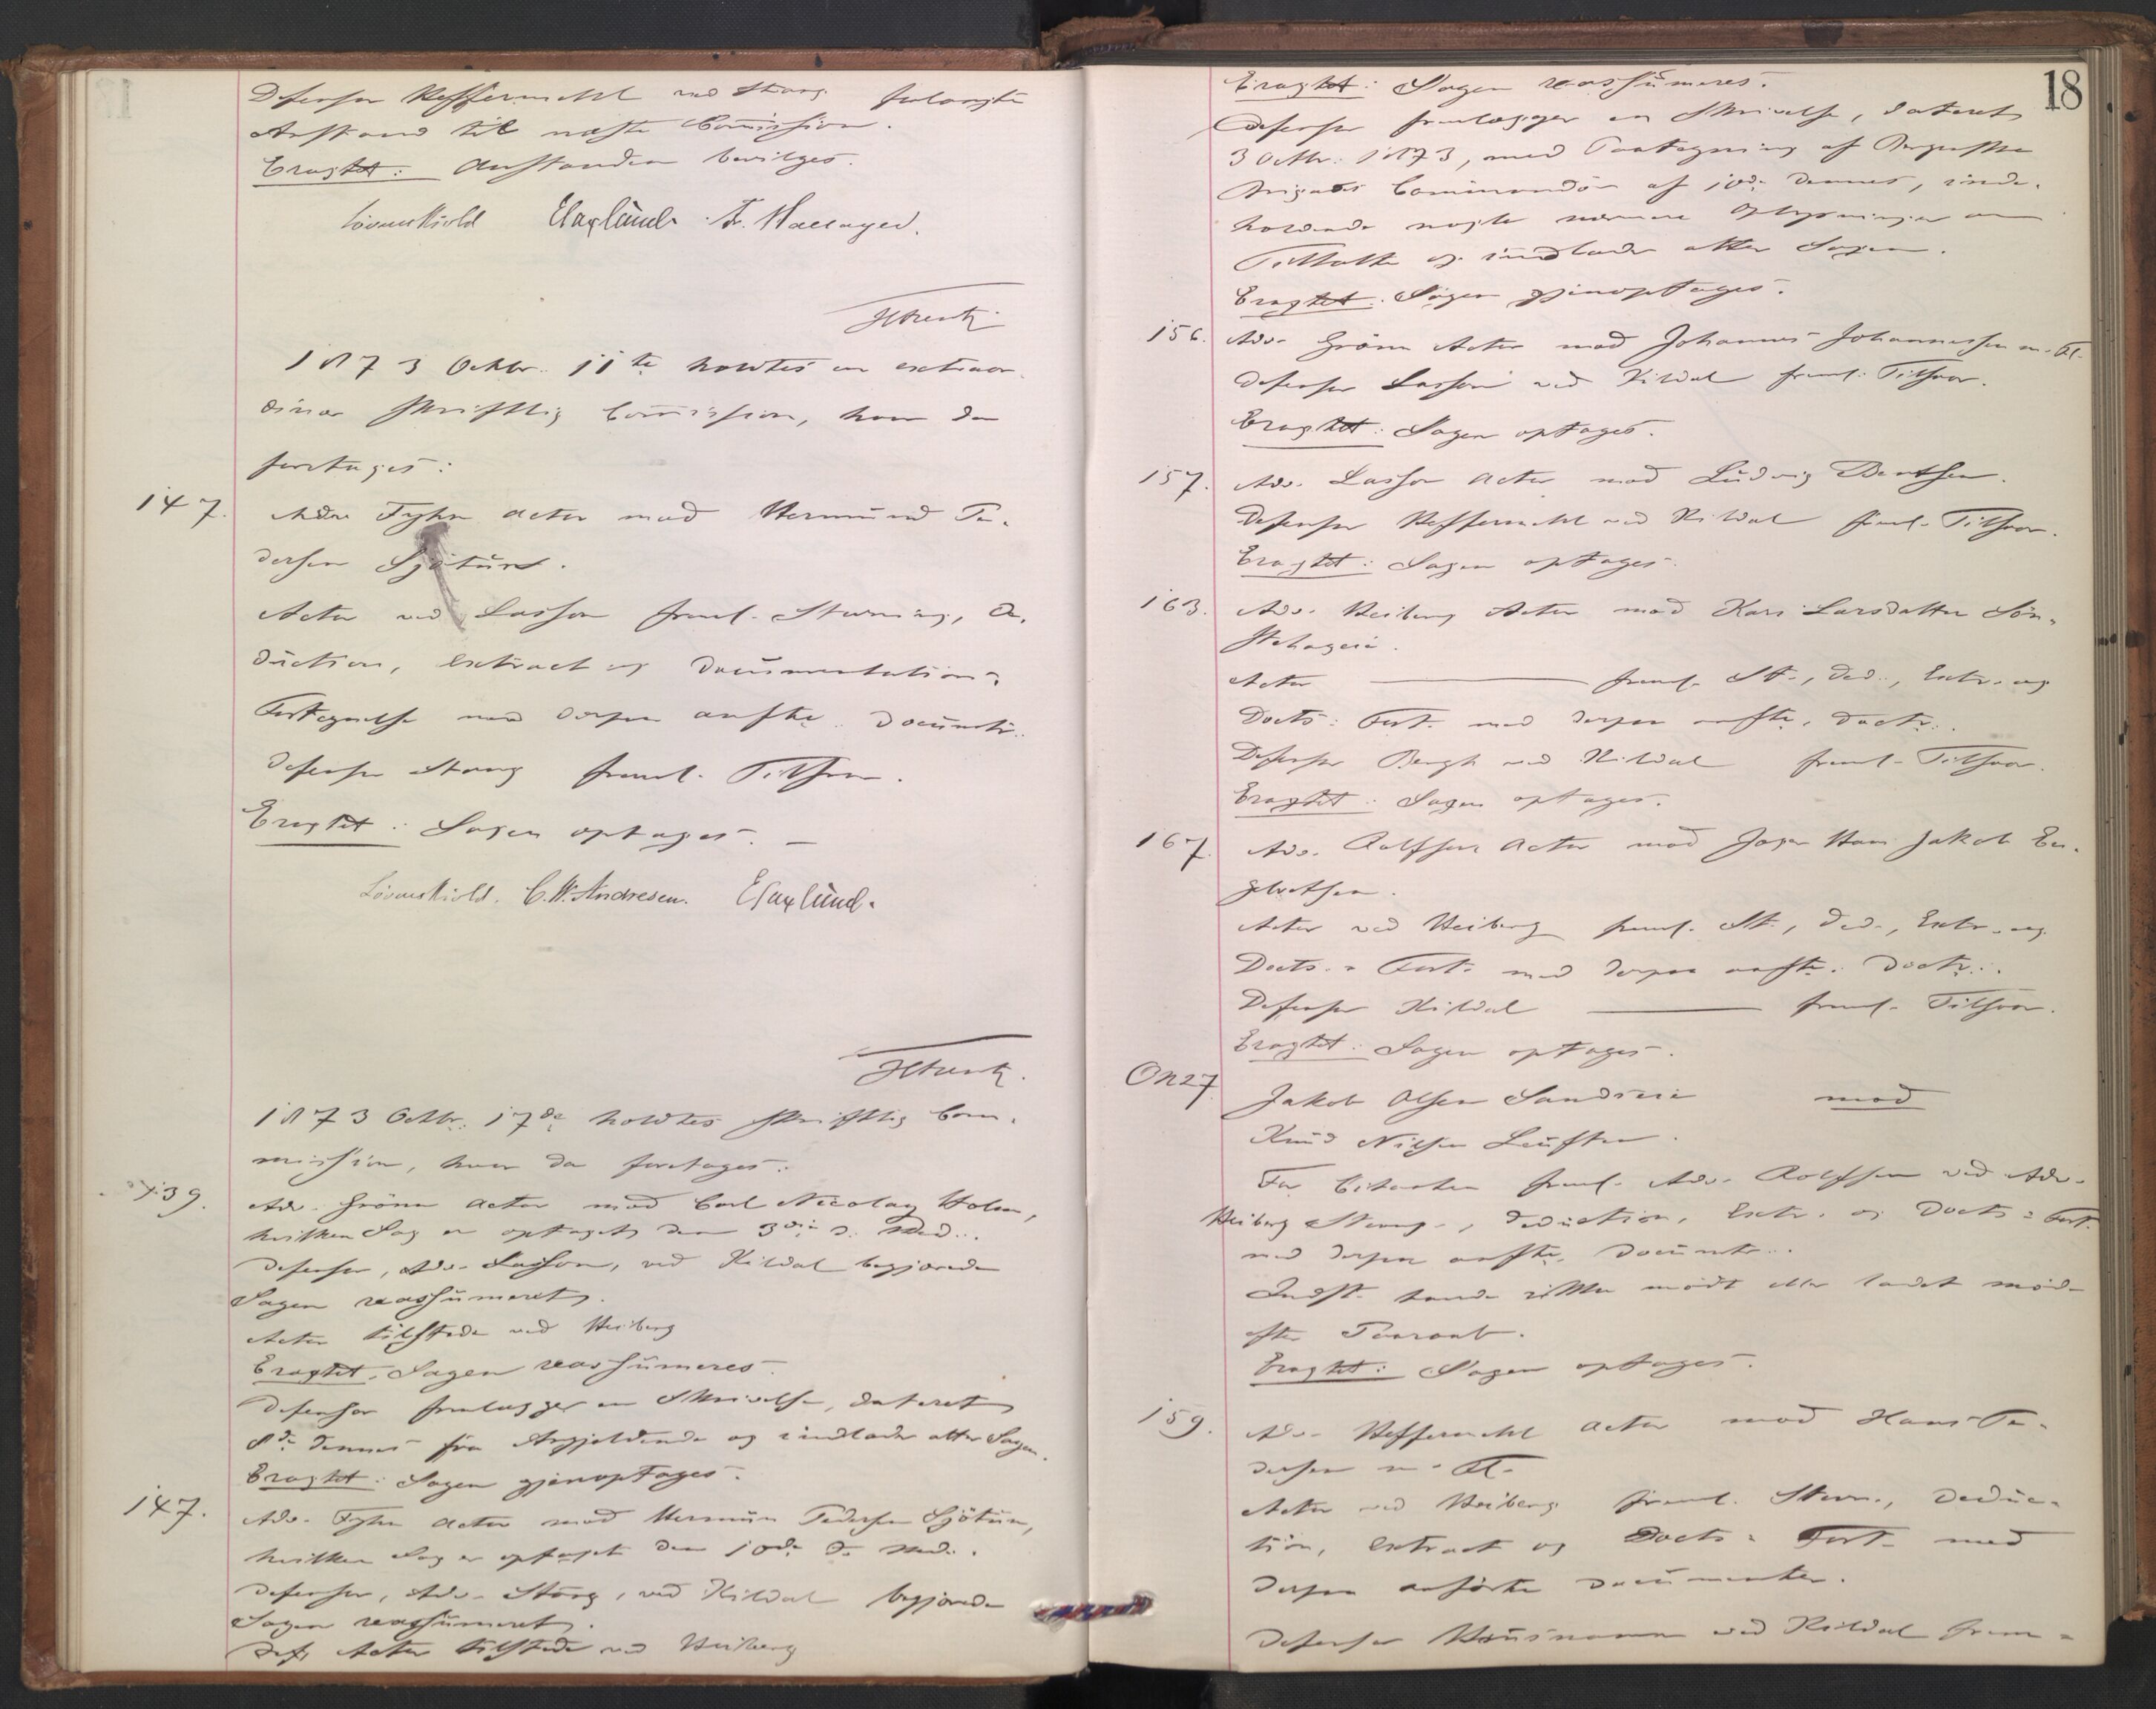 Defensor Heffermehl ved Stang forlangte
Anstand til næste Commission.
Eragtet: Anstanden bevilges.
Løvenskiold E Haxlund. F. Hallager.
1873 Octbr. 11te holdtes en extraor-
dinær skriftlig Commission, hvor da
foretages:
147. Adv. Fyhn Actor mod Hermund Pe-
dersen Sjøtun.
Actor ved Lasson freml. Stevning, De-
duction, Extract og Documentations-
Fortegnelse med derpaa anfte. Documtr.
Defensor Stang freml. Tilsvar.
Eragtet: Sagen optages. –
Løvenskiold. C. W. Andresen. E Haxlund.
1873 Octbr. 17de holdtes skriftlig Com-
mission, hvor da foretages:
139. Adv. Grönn Actor mod Carl Nicolay Holm,
hvilken Sag er optaget den 3die d. Md.
Defensor, Adv. Lasson, ved Kildal begjærede
Sagen reassumeret.
Actor tilstede ved Heiberg
Eragtet. Sagen reassumeres.
Defensor fremlægger en Skrivelse, dateret
8de dennes fra Angjældende og indlader atter Sagen.
Eragtet: Sagen gjenoptages.
147. Adv. Fyhn Actor mod Hermun Pedersen Sjötun,
hvilken Sag er optaget den 10de d. Md.
Defensor, Adv. Stang, ved Kildal begjærede
Sagen reassumeret.
Actor tilstede ved Heiberg
18
Eragtet: Sagen reassumeres.
Defensor fremlægger en Skrivelse, dateret
3 Octbr. 1873, med Paategning af Bergenske
Brigades Commandör af 10de dennes, inde-
holdende nogle nærmere Oplysninger om
Tiltalte og indlader atter Sagen.
Eragtet: Sagen gjenoptages.
156. Adv. Grönn Actor mod Johannes Johannessen m. Fl.
Defensor Lasson ved Kildal freml. Tilsvar.
Eragtet: Sagen optages.
157. Adv. Lasson Actor mod Ludvig Berntsen.
Defensor Heffermehl ved Kildal freml. Tilsvar.
Eragtet: Sagen optages.
163. Adv. Heiberg Actor mod Kari Larsdatter Sön-
stehageie.
Actor ——— freml. St., Ded., Extr. og
Docts: Fort. med derpaa anfte. Doctr.
Defensor Bergh ved Kildal freml. Tilsvar.
Eragtet: Sagen optages.
167. Adv. Rolfsen Actor mod Jøger Hans Jakob En-
gebretsen.
Actor ved Heiberg freml. St., Ded., Extr. og
Docts. = Fort. med derpaa anfte. Doctr.
Defensor Kildal ——— freml. Tilsvar.
Eragtet: Sagen optages.
On 27 Jakob Olsen Sandvin mod
Knud Nilsen Leuften.
For Citanten freml. Adv. Rolfsen ved Adv.
Heiberg Stevng., Deduction, Extr. og Docts = Fort.
med derpaa anfte. Documtr.
Indst. havde ikke mødt eller ladet møde
efter Paaraab.
Eragtet: Sagen optages.
159. Adv. Heffermehl Actor mod Hans Pe-
dersen m. Fl.
Actor ved Heiberg freml. Stevn., Deduc-
tion, Extract og Docts = Fort. med
derpaa anførte Documenter.
Defensor Husmann ved Kildal frem-